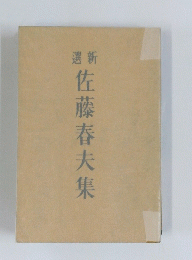 新選
佐藤春夫集